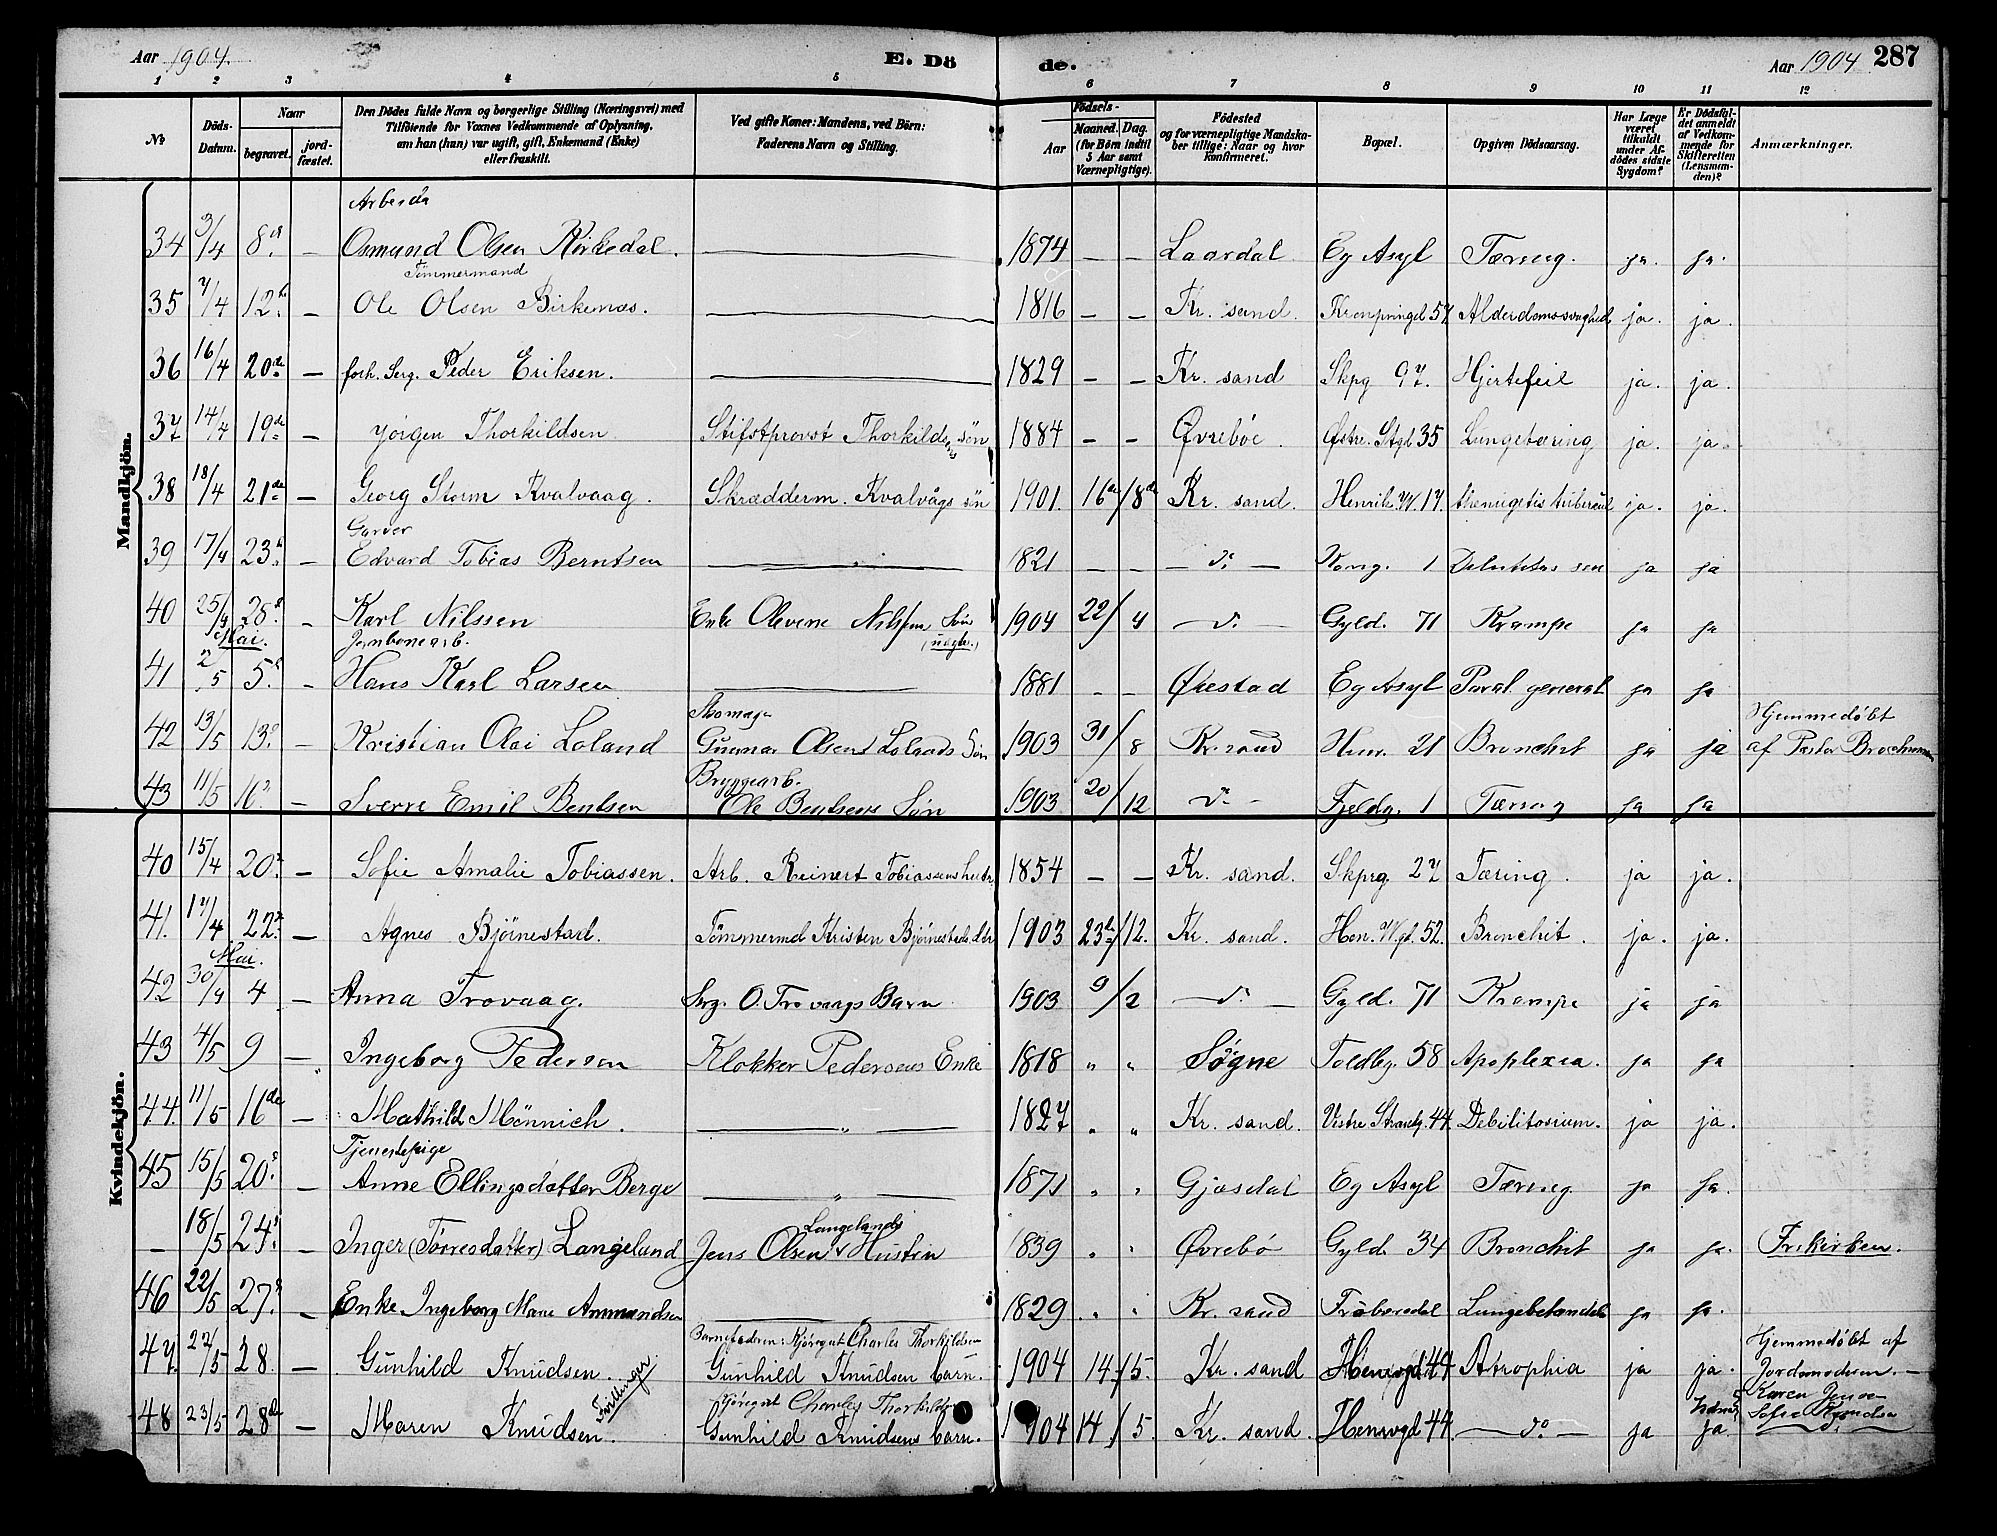 Aar 1904. E. Dö de. Aar 1904 287
1 2 3 4 5 6 7 8 9 10 11 12
No
Döds-Datum.
Naar
begravet.
jord-fæstet.
Den Dödes fulde Navn og borgerlige Stilling (Næringsvei) med
Tilföiende for Voxnes Vedkommende af Oplysning,
om han (hun) var ugift, gift, Enkemand (Enke)
eller fraskilt.
Ved gifte Koner: Mandens, ved Börn:
Faderens Navn og Stilling.
Födsels-
Aar
Maaned. Dag.
(for Börn indtil
5 Aar samt
Værnepligtige).
Födested
og for værnepligtige Mandska-
ber tillige: Naar og hvor
konfirmeret.
Bopæl.
Opgiven Dödsaarsag.
Har Læge
været
tilkaldt
under Af-
dödes sidste
Sygdom?
Er Dödsfal-
det anmeldt
af Vedkom-
mende for
Skifteretten
(Lensman-
den)?
Anmærkninger.
Mandkjön.
Arbeider
34 3/4 8de — Osmund Olsen Kirkedal. — 1874 — — Laardal Eg Asyl Tæring. ja. ja.
Tömmermand
35 7/4 12te — Ole Olsen Birkenæs. — 1816 — — Kr. sand. Kronprinsgd 57 Alderdomssvaghed ja. ja.
36 16/4 20de — forh. Serg. Peder Eriksen. — 1829 — — Kr. sand Skpg 97. Hjertefeil ja. ja.
37 14/4 19de — Jörgen Thorkildsen Stiftsprovst Thorkildsens sön 1884 — — Øvrebøe. Østre. Stgd 35 Lungetæring ja. ja.
38 18/4 21de — Georg Storm Kvalvaag. Skrædderm. Kvalvågs sön 1901. 16de/8de Kr. sand. Henrik. W. 17. ja. ja.
Garver
39 17/4 23de — Edvard Tobias Berntsen — 1821 — — — do — Kong. 1 Debilitas sen ja ja
40 25/4 28de — Karl Nilssen Enke Olevine Nilssens Sön 1904 22/4 — do — Gyld. 71 Krampe ja ja
(uægte.)
Mai. Jernbanearb.
41 2/5 5te — Hans Karl Larsen — 1881 — — Øiestad Eg Asyl Paral. general. ja ja
Skomager Hjemmedöbt
42 13/5 13de Kristian Olai Loland Gunnar Olsen Lolands Sön 1903 31/8 Kr. sand Henr. 21 Bronchit ja ja af Pastor
Bryggearb.
43 11/5 16de — Sverre Emil Bentsen Ole Bentsens Sön 1903 20/12 do — Fjeldg. 1 Tæring ja ja
Kvindekjön.
40 15/4 20de — Sofie Amalie Tobiassen. Arb. Reinert Tobiassens hustr. 1854 — — Kr. sand. Skprg. 27 Tæring. ja ja.
41. 17/4 22de — Agnes Bjørnestad. Tömmermd Kristen Bjørnestads dtr 1903 23de/12. Kr. sand. Hen. Wgd. 52. Bronchit. ja. ja.
Mai.
42 30/4 4 — Anna Trovaag. Serg. O. Trovaags Barn 1903 9/2 — do — Gyld. 71 Krampe ja ja
43 4/5 9 — Ingeborg Pedersen Klokker Pedersens Enke 1818 " " Søgne Toldbg. 58 Apoplexia. ja ja
44. 11/5 16de — Mathild Mönnich. — " — 1827 " " Kr. sand. Vestre Strandg. 44. ja ja.
Tjenestepige
45 15/5 20de — Anne Ellingsdatter Berge — " — 1871 " " Gjæsdal Eg Asyl Tæring ja ja.
Langelands
— 18/5 24de — Inger (Torresdatter) Langeland Jens Olsen v Hustru 1839 " " Øvrebö Gyld. 34 Bronchit ja ja. Frikirken.
46 22/5 27de — Enke Ingeborg Marie Ammundsen — 1829 " " Kr. sand Lungebetændels ja ja.
Barnefaderen: Kjöregut Charles Thorkildsen Hjemmedöbt af
47. 22/5 28 — Gunhild Knudsen. Gunhild Knudsen barn. 1904 14./5. Kr. sand Henwgd 44 Atrophia ja ja. Jordemoderen. —
Tvillinger
Kjöregut Charles Thorkildsen Karen
48 23/5 28de — Maren Knudsen. Gunhild Knudsens barn. 1904 14/5. Kr. sand. Henwgd 44. — do — ja ja. Sofie Knudsen
do